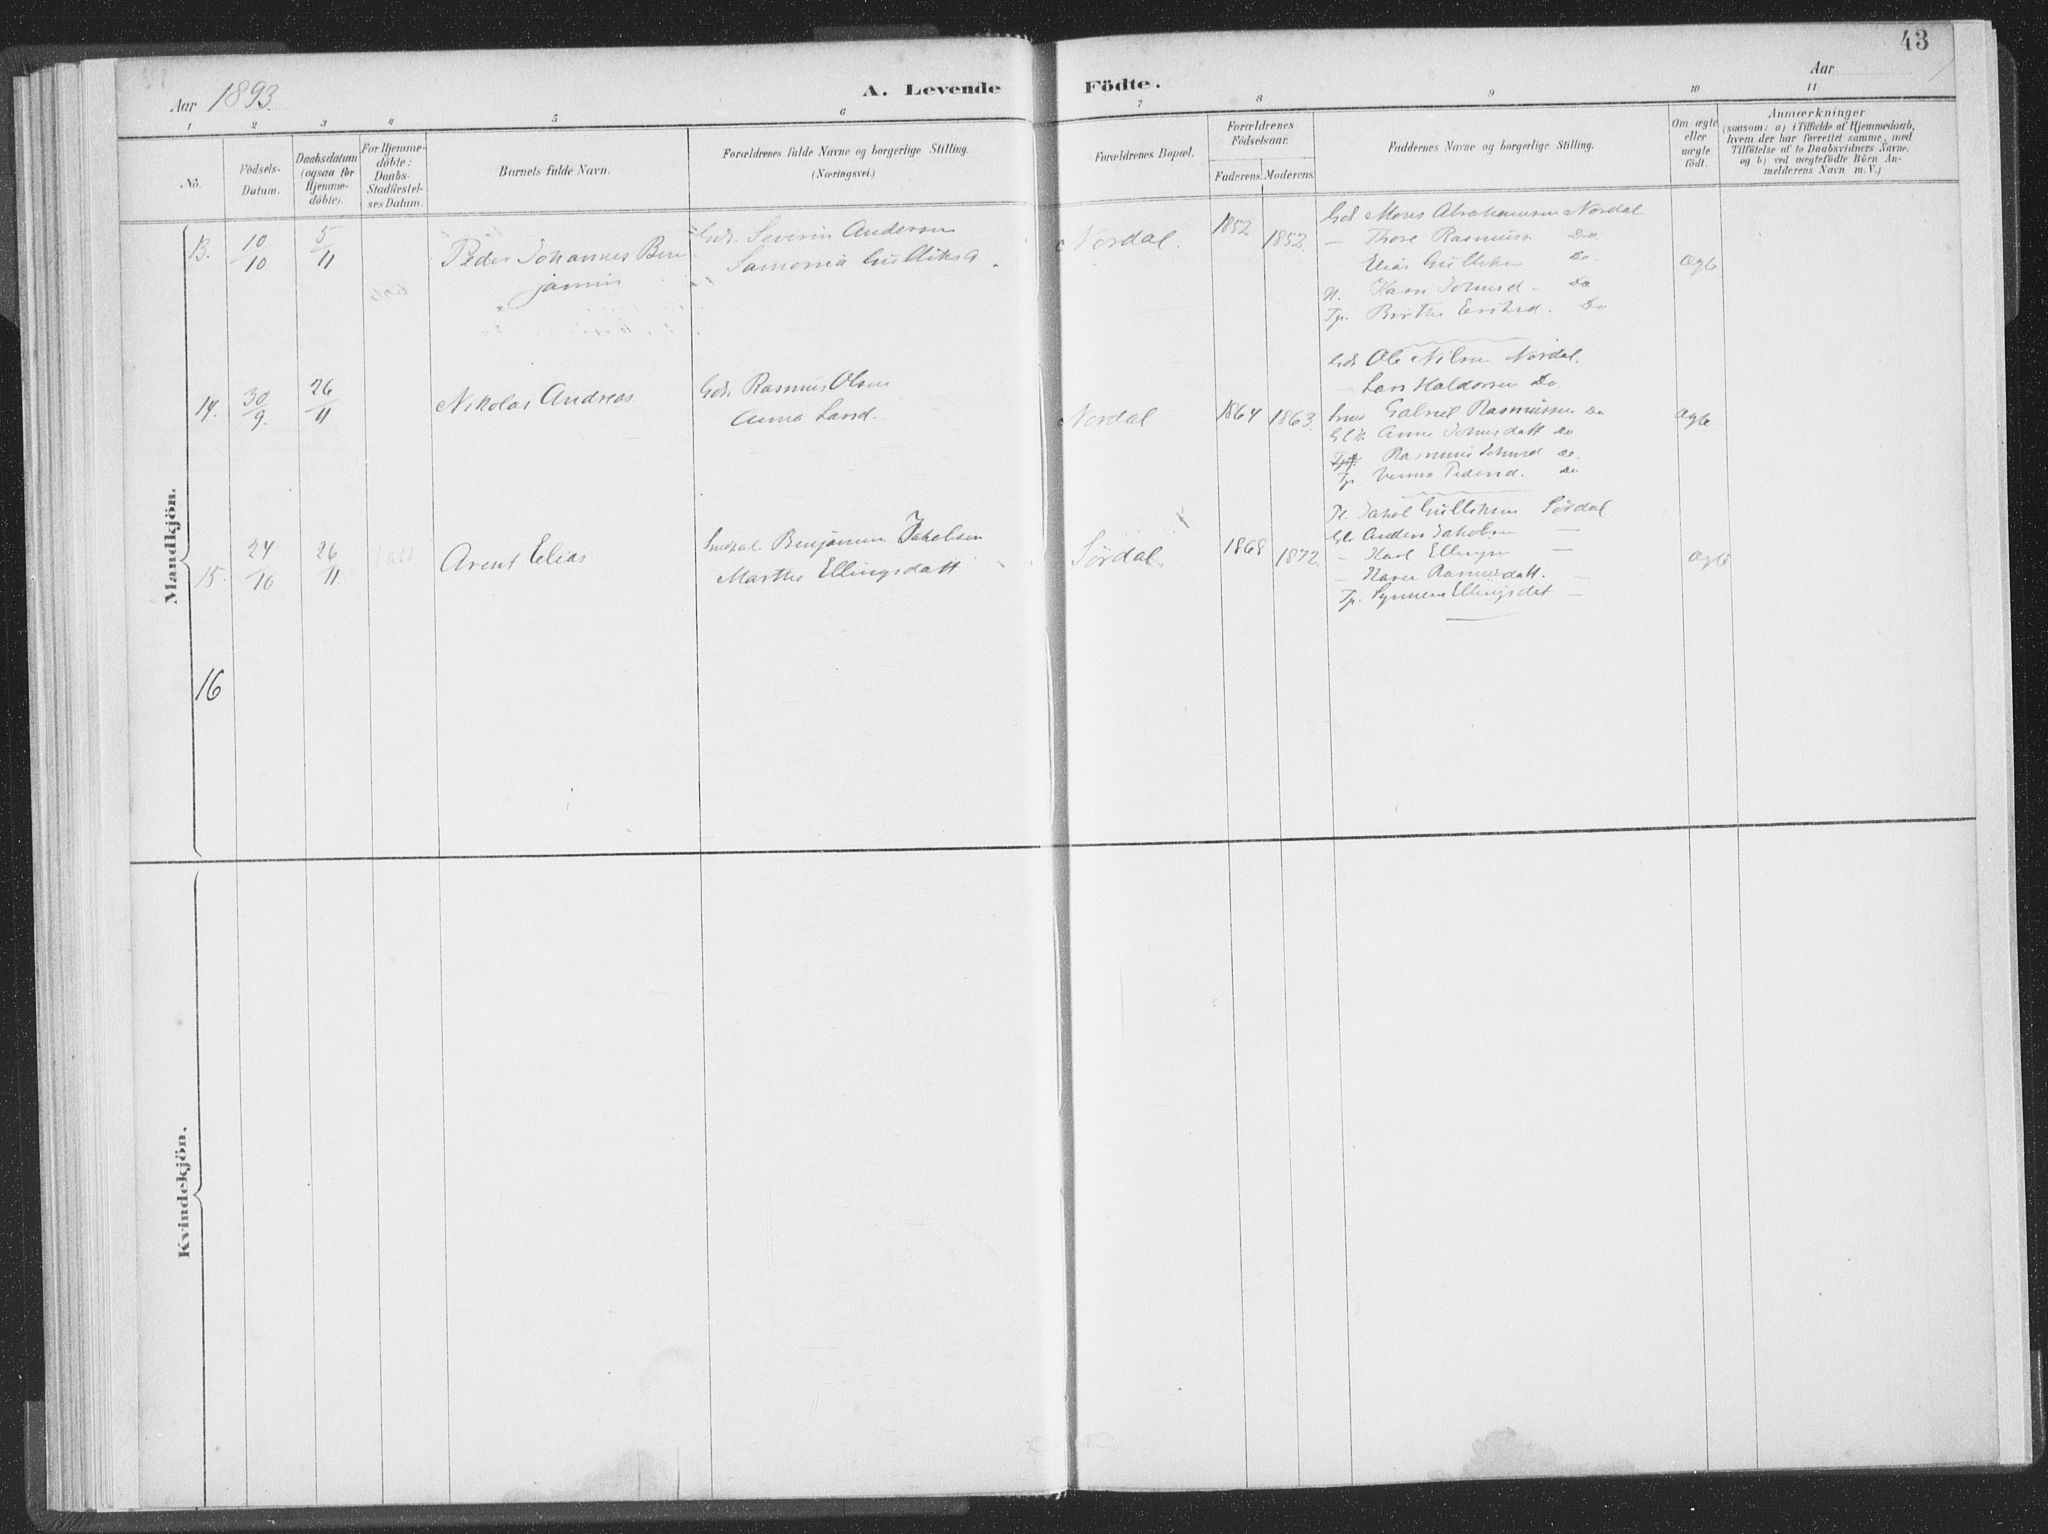 43
Aar 1893.
A. Levende Födte.
Aar
1 2 3 4 5 6 7 8 9 10 11
No.
Födsels-
Datum.
Daabsdatum
(ogsaa for
Hjemme-
döbte).
For Hjemme-
döbte:
Daabs-
Stadfæstel-
ses Datum.
Barnets fulde Navn.
Forældrenes fulde Navne og borgerlige Stilling.
(Næringsvei.)
Forældrenes Bopæl.
Forældrenes
Födselsaar.
Faderens. Moderens.
Faddernes Navne og borgerlige Stilling.
Om ægte
eller
uægte
födt.
Anmærkninger
(saasom: a) i Tilfælde af Hjemmedaab,
hvem der har forrettet samme, med
Tilföielse af to Daabsvidners Navne,
og b) ved uægtefödte Börn An-
melderens Navn m. V.)
Mandkjön.
13. 10/10 5/11
Peder Johannes Ben
jamin
Gdr. Severin Andersen
Nordal. 1852 1852
Gdr Mons Abrahamsen Nordal
— Thore Rasmuss Do
Elias Gulliksen Do.
Do
Tp. Birthe Do
Ægte
14. 30/9. 26/11
Nikolai Andreas
Gdr. Rasmus Olsen
Anna Land.
Nordal 1864 1863.
Gdr Ole Nilsen Nordal.
— Lars Haldorsen Do
Gabriel Rasmussen Do
Anne Do
Rasmine Do.
Tp Do
Ægte
15. 24/10 26/11
Arent Elias
Benjamin Jakobsen
Marthe Ellingsdatt
Sørdal. 1868 1872.
Jakob Gulliksen Sørdal
Anders Jakobsen —
— Karl Ellingsen —
— Karen Rasmusdatt. —
Tp. Synneve Ellingsdat —
Ægte
16
Kvindekjön.